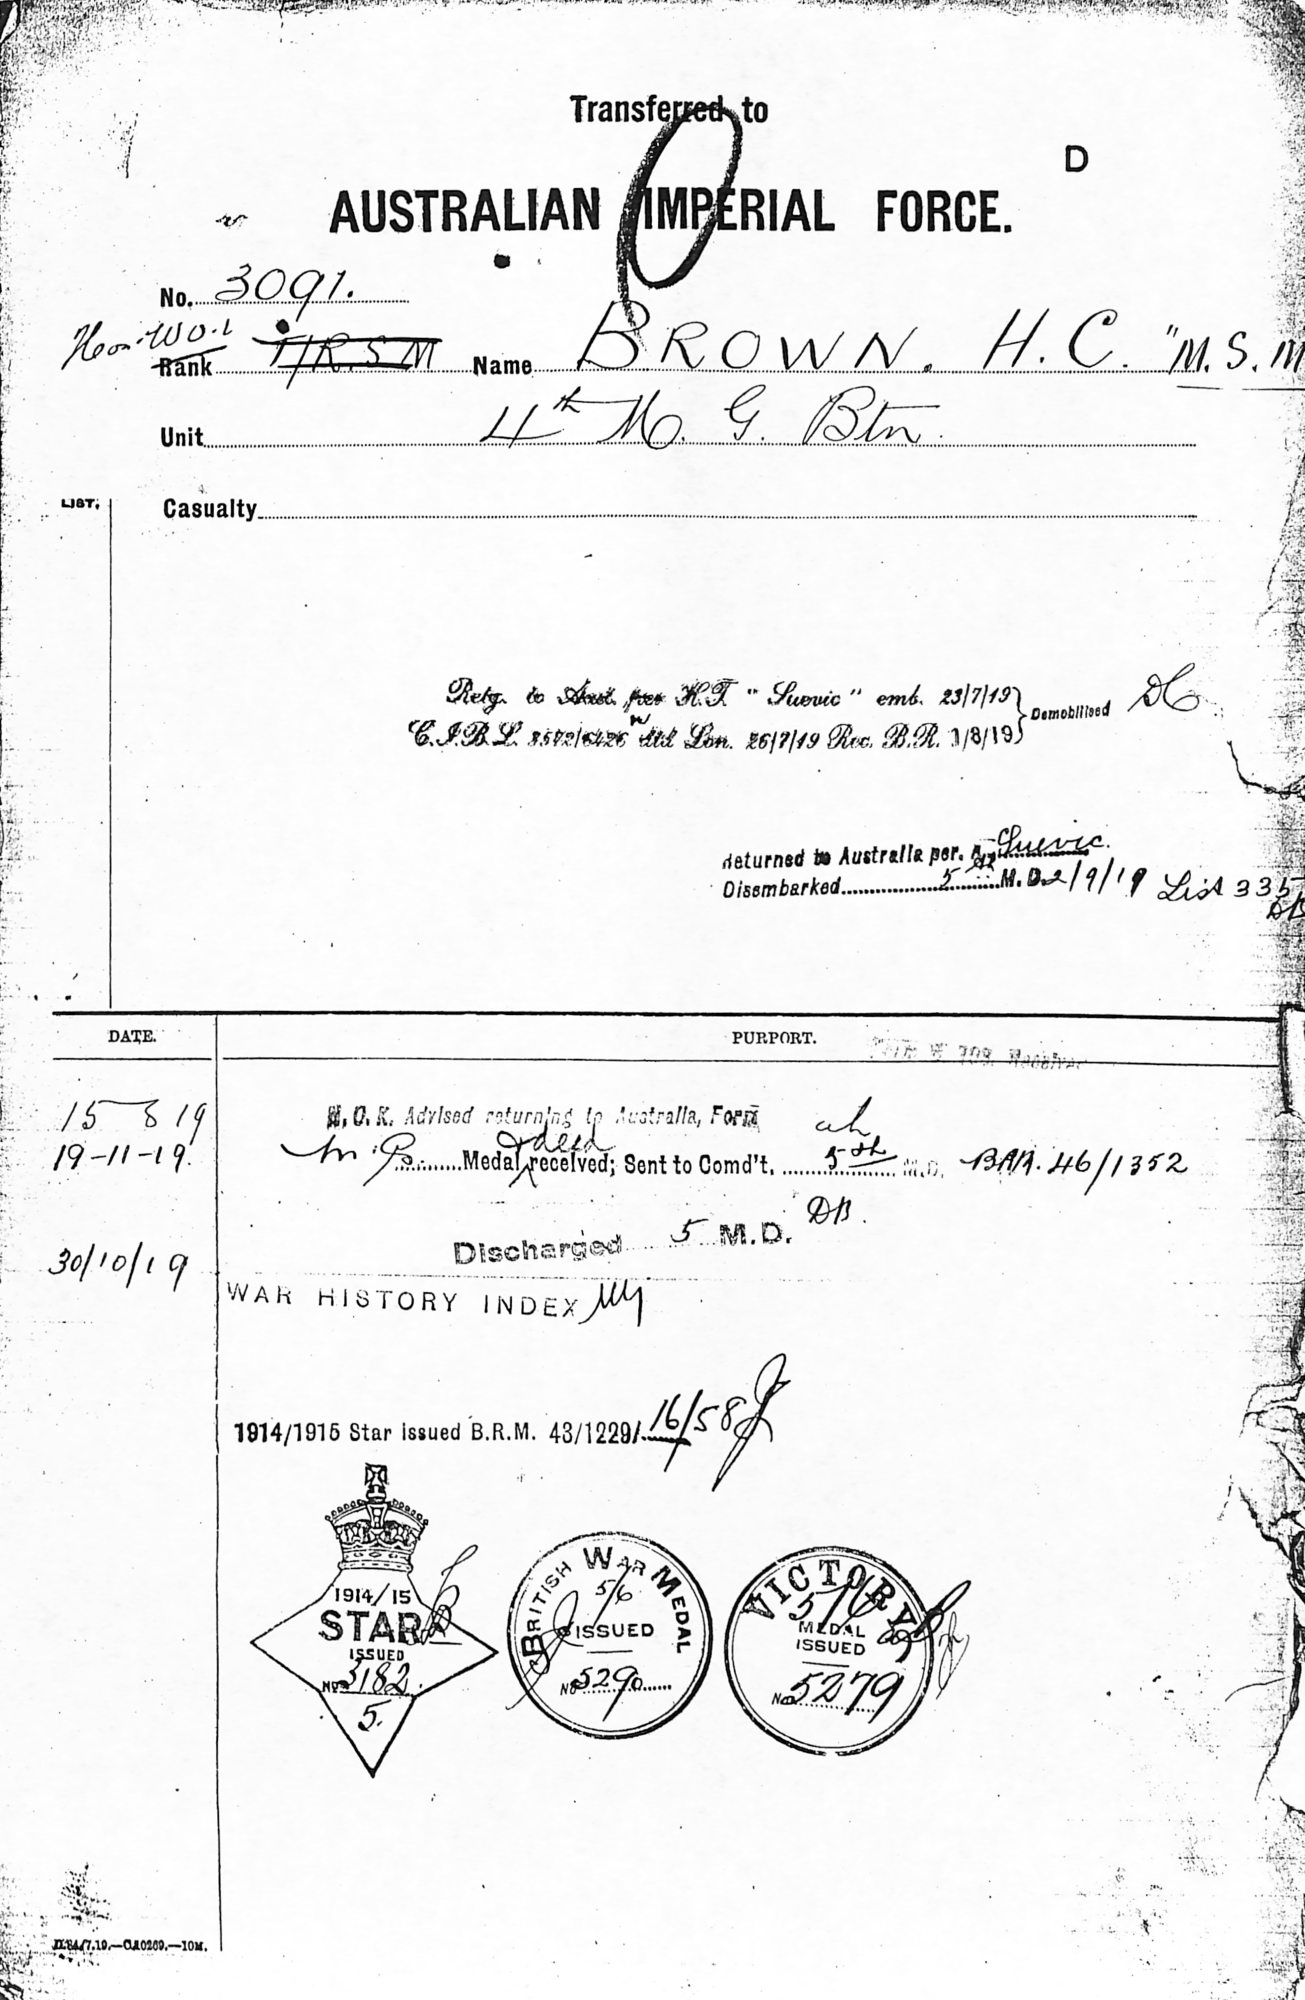 Transferred to
D
AUSTRALIAN IMPERIAL FORCE.
No. 3091.
Hon. W.O.1
Rank T/R.S.M Name BROWN. H. C. "M. S. M
Unit 4th M. G. Btn.
LIST.
Casualty
Retg. to Aust. per H.T. "Suevic" emb. 23/7/19
Demobilised
C.I.B.L. Lon. 26/7/19 Rec. B.R. 1/8/19
Returned to Australia per. Suevic.
Disembarked 5 M.D. 2/9/19 List 335
DB
DATE. PURPORT.
15 8 19 N.O.K. Advised returning to Australia, Form
& deed
19-11-19. Medal received; Sent to Comd't. 5th M.D. 46/1352
DB.
30/10/19 Discharged 5 M.D.
WAR HISTORY INDEX
1914/1915 Star issued B.R.M. 43/1229/ 16/58
1914/15
STAR
ISSUED
No 3182.
5.
BRITISH WAR MEDAL
5/6
ISSUED
No 5290
VICTORY
5/6
MEDAL
ISSUED
No 5279
D.84/7.19.—C.10269.—10M.